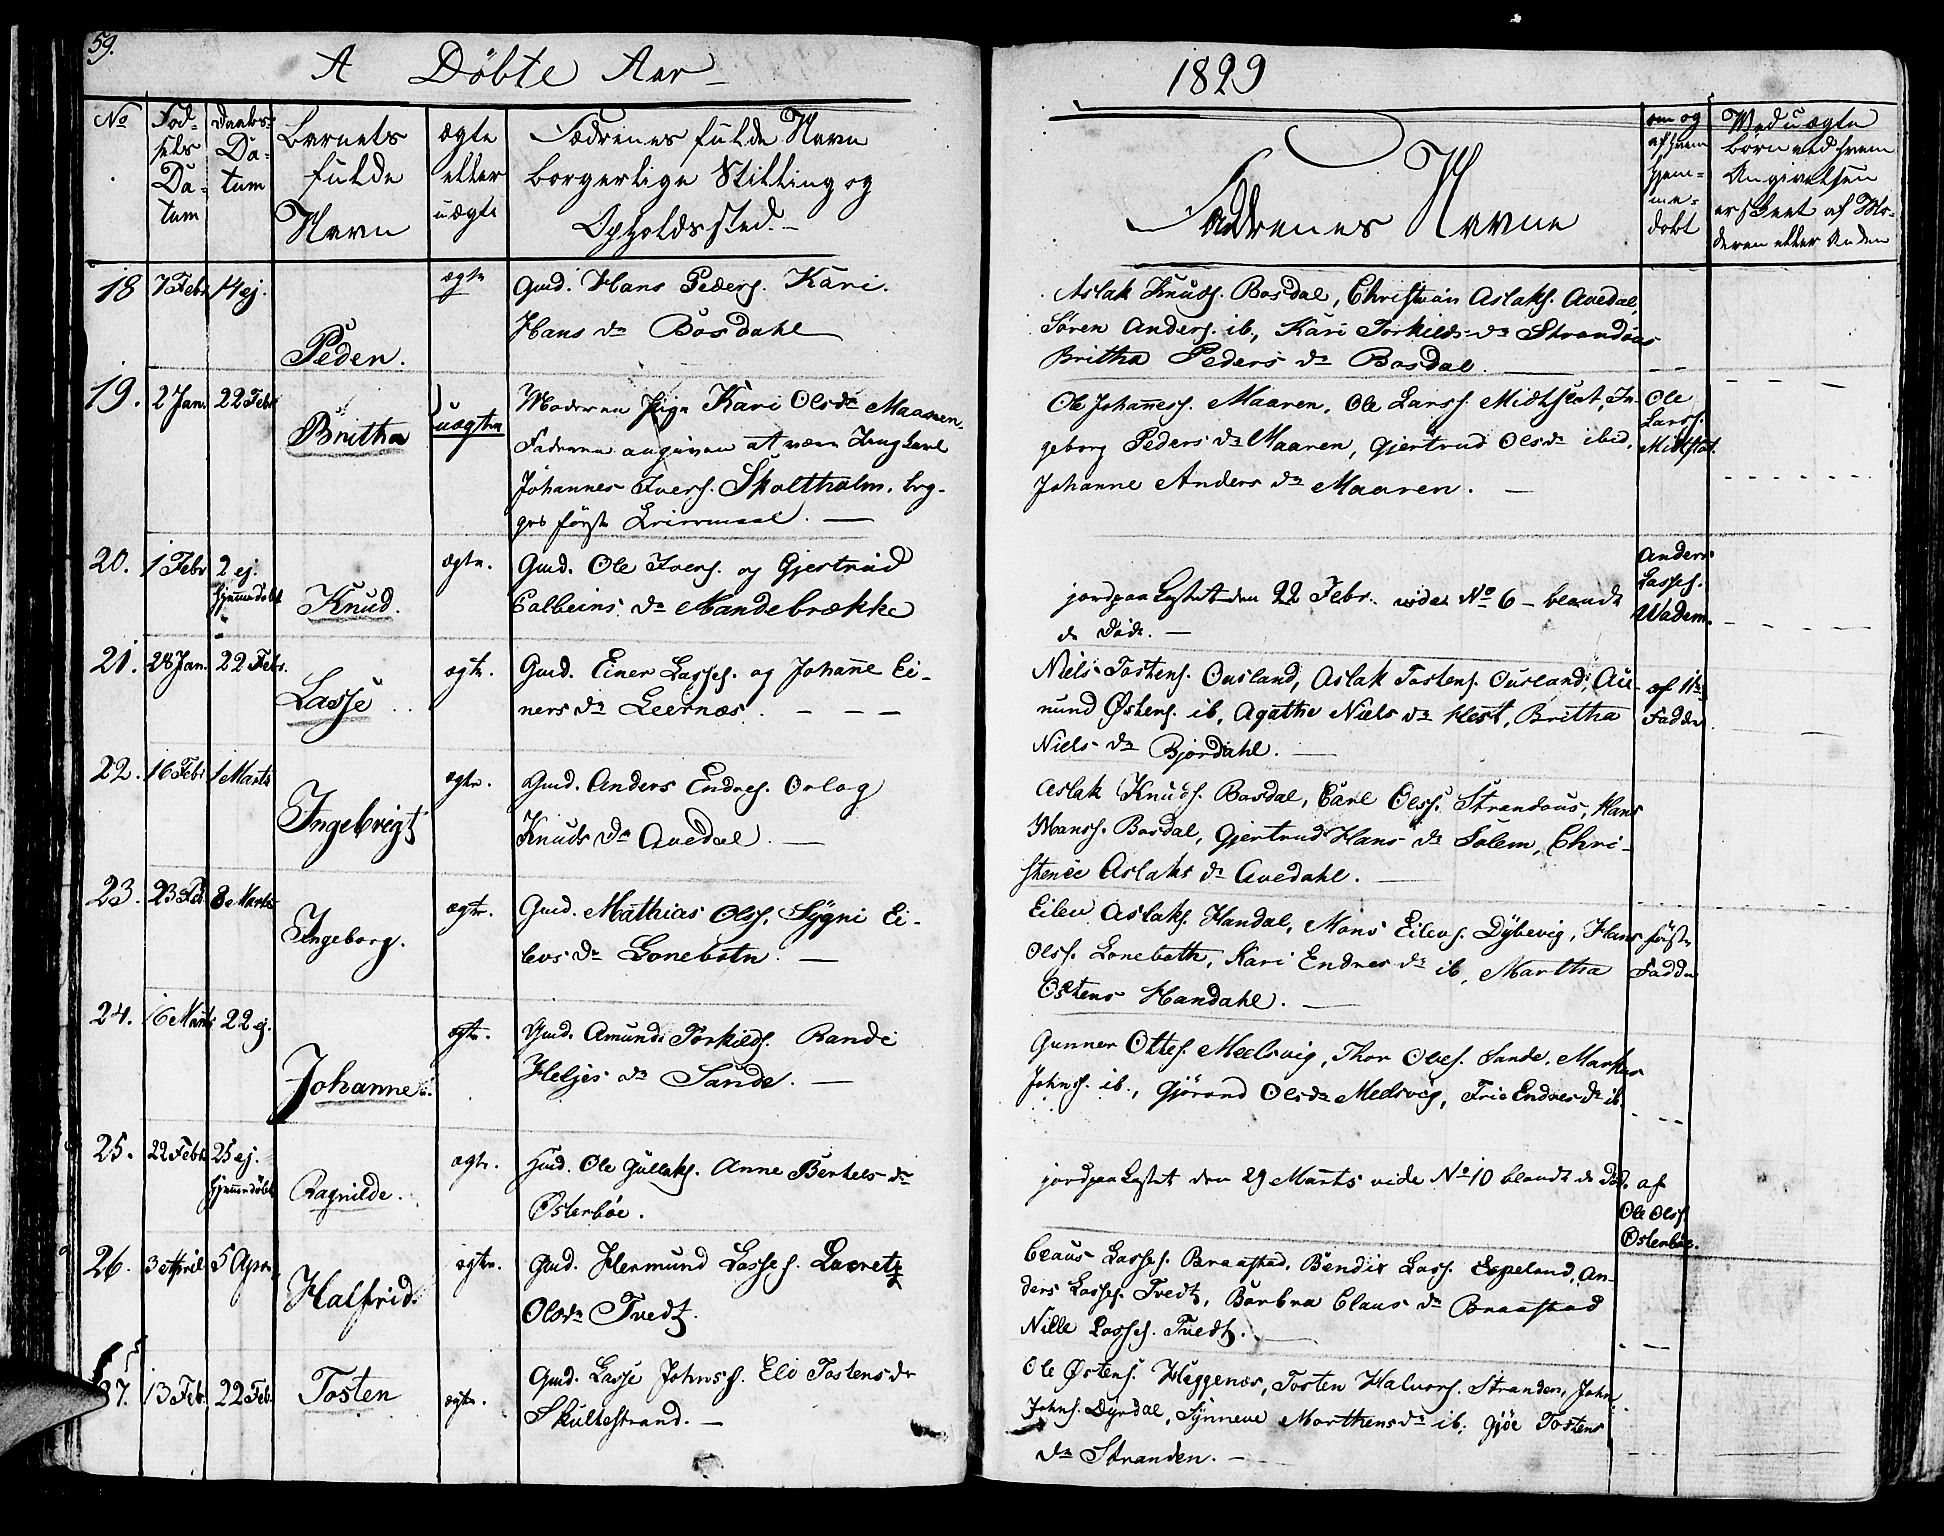 59.
A Döbte Aar
1829
No
Föd-
sels
Da-
tum
Daabs-
Da-
tum
Barnets
fulde
Navn
ægte
eller
uægte
Fædrenes fulde Navn
borgerlige Stilling og
Opholdssted.
Faddrenes Navne
om og
af hvem
hjem-
me-
döbt
Med uægte
börn ved hvem
Angivelsen
er skeet af Mo-
deren eller Anden
18 7 Febr 14 ej.
Peden.
ægte
Gmd. Hans Peders. Kari
Hans Dr Bosdahl
Aslak Knuds. Bosdal, Christian Aslaks. Avedal,
Sören Anders. ib, Kari Torkilds Dr Strandous
Britha Peders Dr Bosdal.
19. 2 Jan. 22 Febr
Britha
uægte
Moderen Pige Kari Olsdr Maaren.
Faderen angiven at være Ungkarl
Johannes Ivers. Skoltholm, beg-
ges förste Leiermaal.
Ole Johanness. Maaren, Ole Larss. Midtslot, In-
geborg Peders Dr Maaren, Gjertrud Olsdr ibid,
Johanne Anders Dr Maaren.
Ole
Larss.
Midtslot.
20. 1 Febr 2 ej.
hjemmedöbt
Knud.
ægte.
Gmd. Ole Ivers. og Gjertrud
Colbeins Dr Nandebrække
jordpaakastet den 22 Febr. vide No 6 - blandt
de Döde.
Anders
Lasses.
Wadem.
21. 28 Jan. 22 Febr.
Lasse
ægte.
Gmd. Einer Lasses. og Johanne Ei-
ners Dr Leernæs.
Niels Tostens. Ousland, Aslak Tostens. Ousland, Au-
mund Östens. ib, Agathe Niels Dr Hest, Britha
Niels Dr Bjordahl.
af 1ste
Fadder
22. 16 Febr 1 Marts
Ingebrigt
ægte.
Gmd. Anders Endres. Orlog
Knuds Dr Avedal.
Aslak Knuds. Bosdal, Carl Olss. Strandous, Hans
Monss. Bosdal, Gjertrud Hans Dr Solem, Chri-
stense Aslaks Dr Avedahl.
23. 23 Feb 8 Marts
Ingeborg.
ægte.
Gmd. Mathias Olss. Sygni Ei-
levs Dr Lonebotn.
Eilev Aslaks. Handal, Mons Eilevs. Dybevig, Hans
Olss. Lonebotn, Kari Endres Dr ib, Martha
Ostens Handahl.
förste
Fadder
24. 16 Marts 22 ej.
Johanne.
ægte.
Gmd. Amund Torkilds. Randi
Heljes Dr Sande.
Gunner Ottes. Meelsvig, Thor Oles. Sande, Markus
Johnss. ib., Gjörond Olsdr Meelsvig, Brie Endres Dr ib.
25. 22 Febr 25 ej.
hjemmedöbt
Ragnilde.
ægte.
Hmd. Ole Gullaks. Anne Berthels Dr
Österböe.
jordpaakastet den 29 Marts vide No 10 blandt de Död.
af
Ole Olss.
Österböe.
26. 3 April 5 Apr.
Halfrid.
ægte.
Gmd. Hermund Lasses. Lacretz
Olsdr Tvedt.
Claus Lasses. Braastad, Bendix Lass. Espeland, An-
ders Lasses. Tvedt, Barbra Claus Dr Braastad
Nille Lasses. Tvedt.
27. 13 Febr. 22 Feb.
Tosten
ægte.
Gmd. Lasse Johnss. Eli Tostensdr
Skultestrand.
Ole Östens. Heggenes, Tosten Halvors. Stranden, John
Johns. Dyrdal, Synneve Marthens Dr ib; Gjöe Tostens
Dr Stranden.